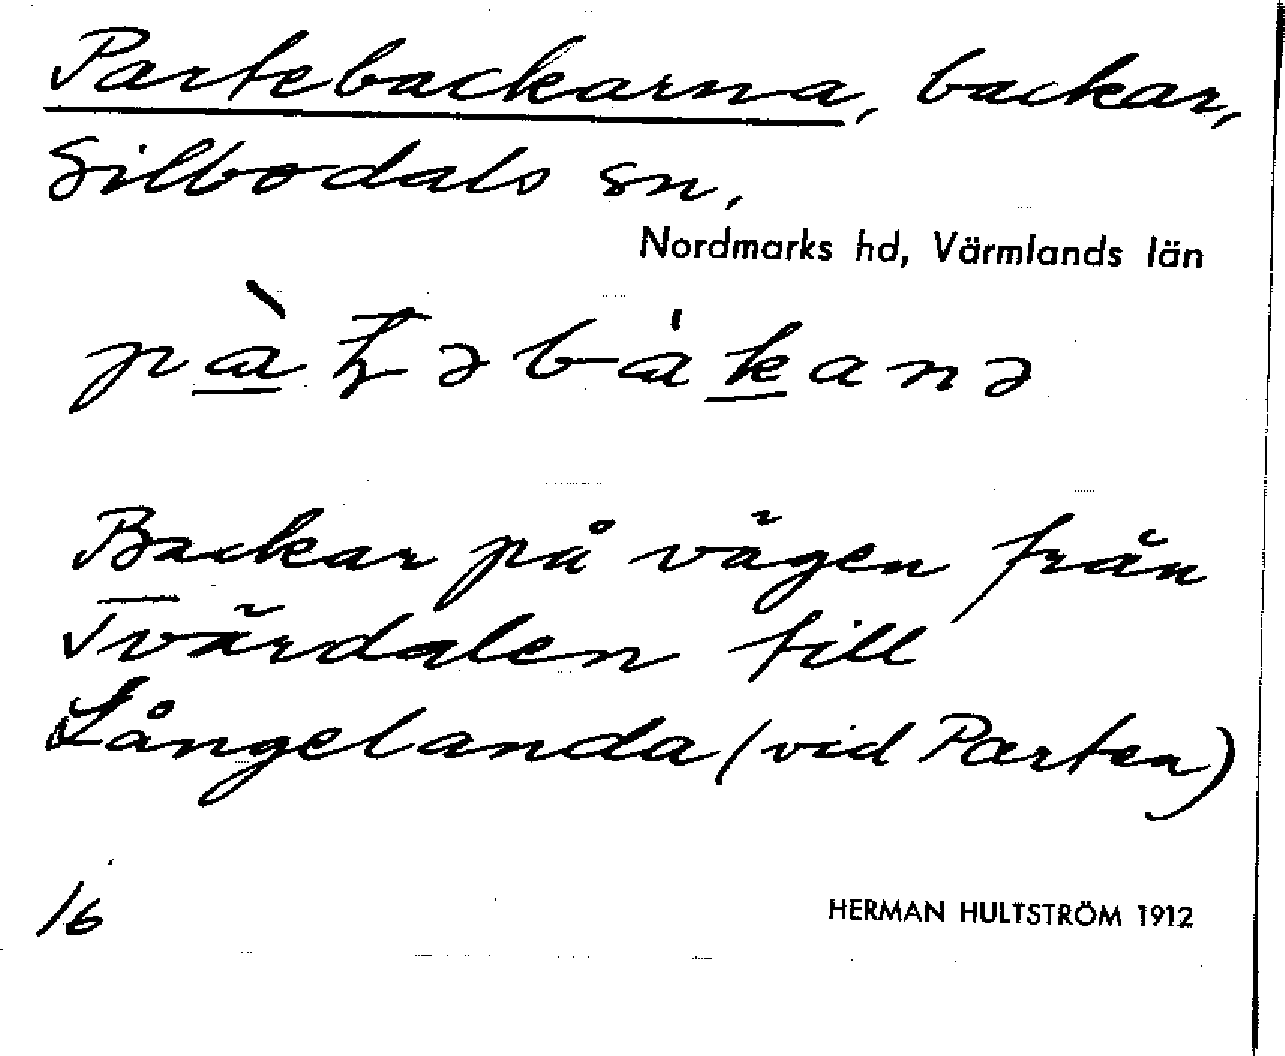 Partebackarna, backar,
Silbodals sn,
Nordmarks hd, Värmlands län
Backar på vägen från
Tvärdalen till
Långelanda (vid Parten)
16
HERMAN HULTSTRÖM 1912